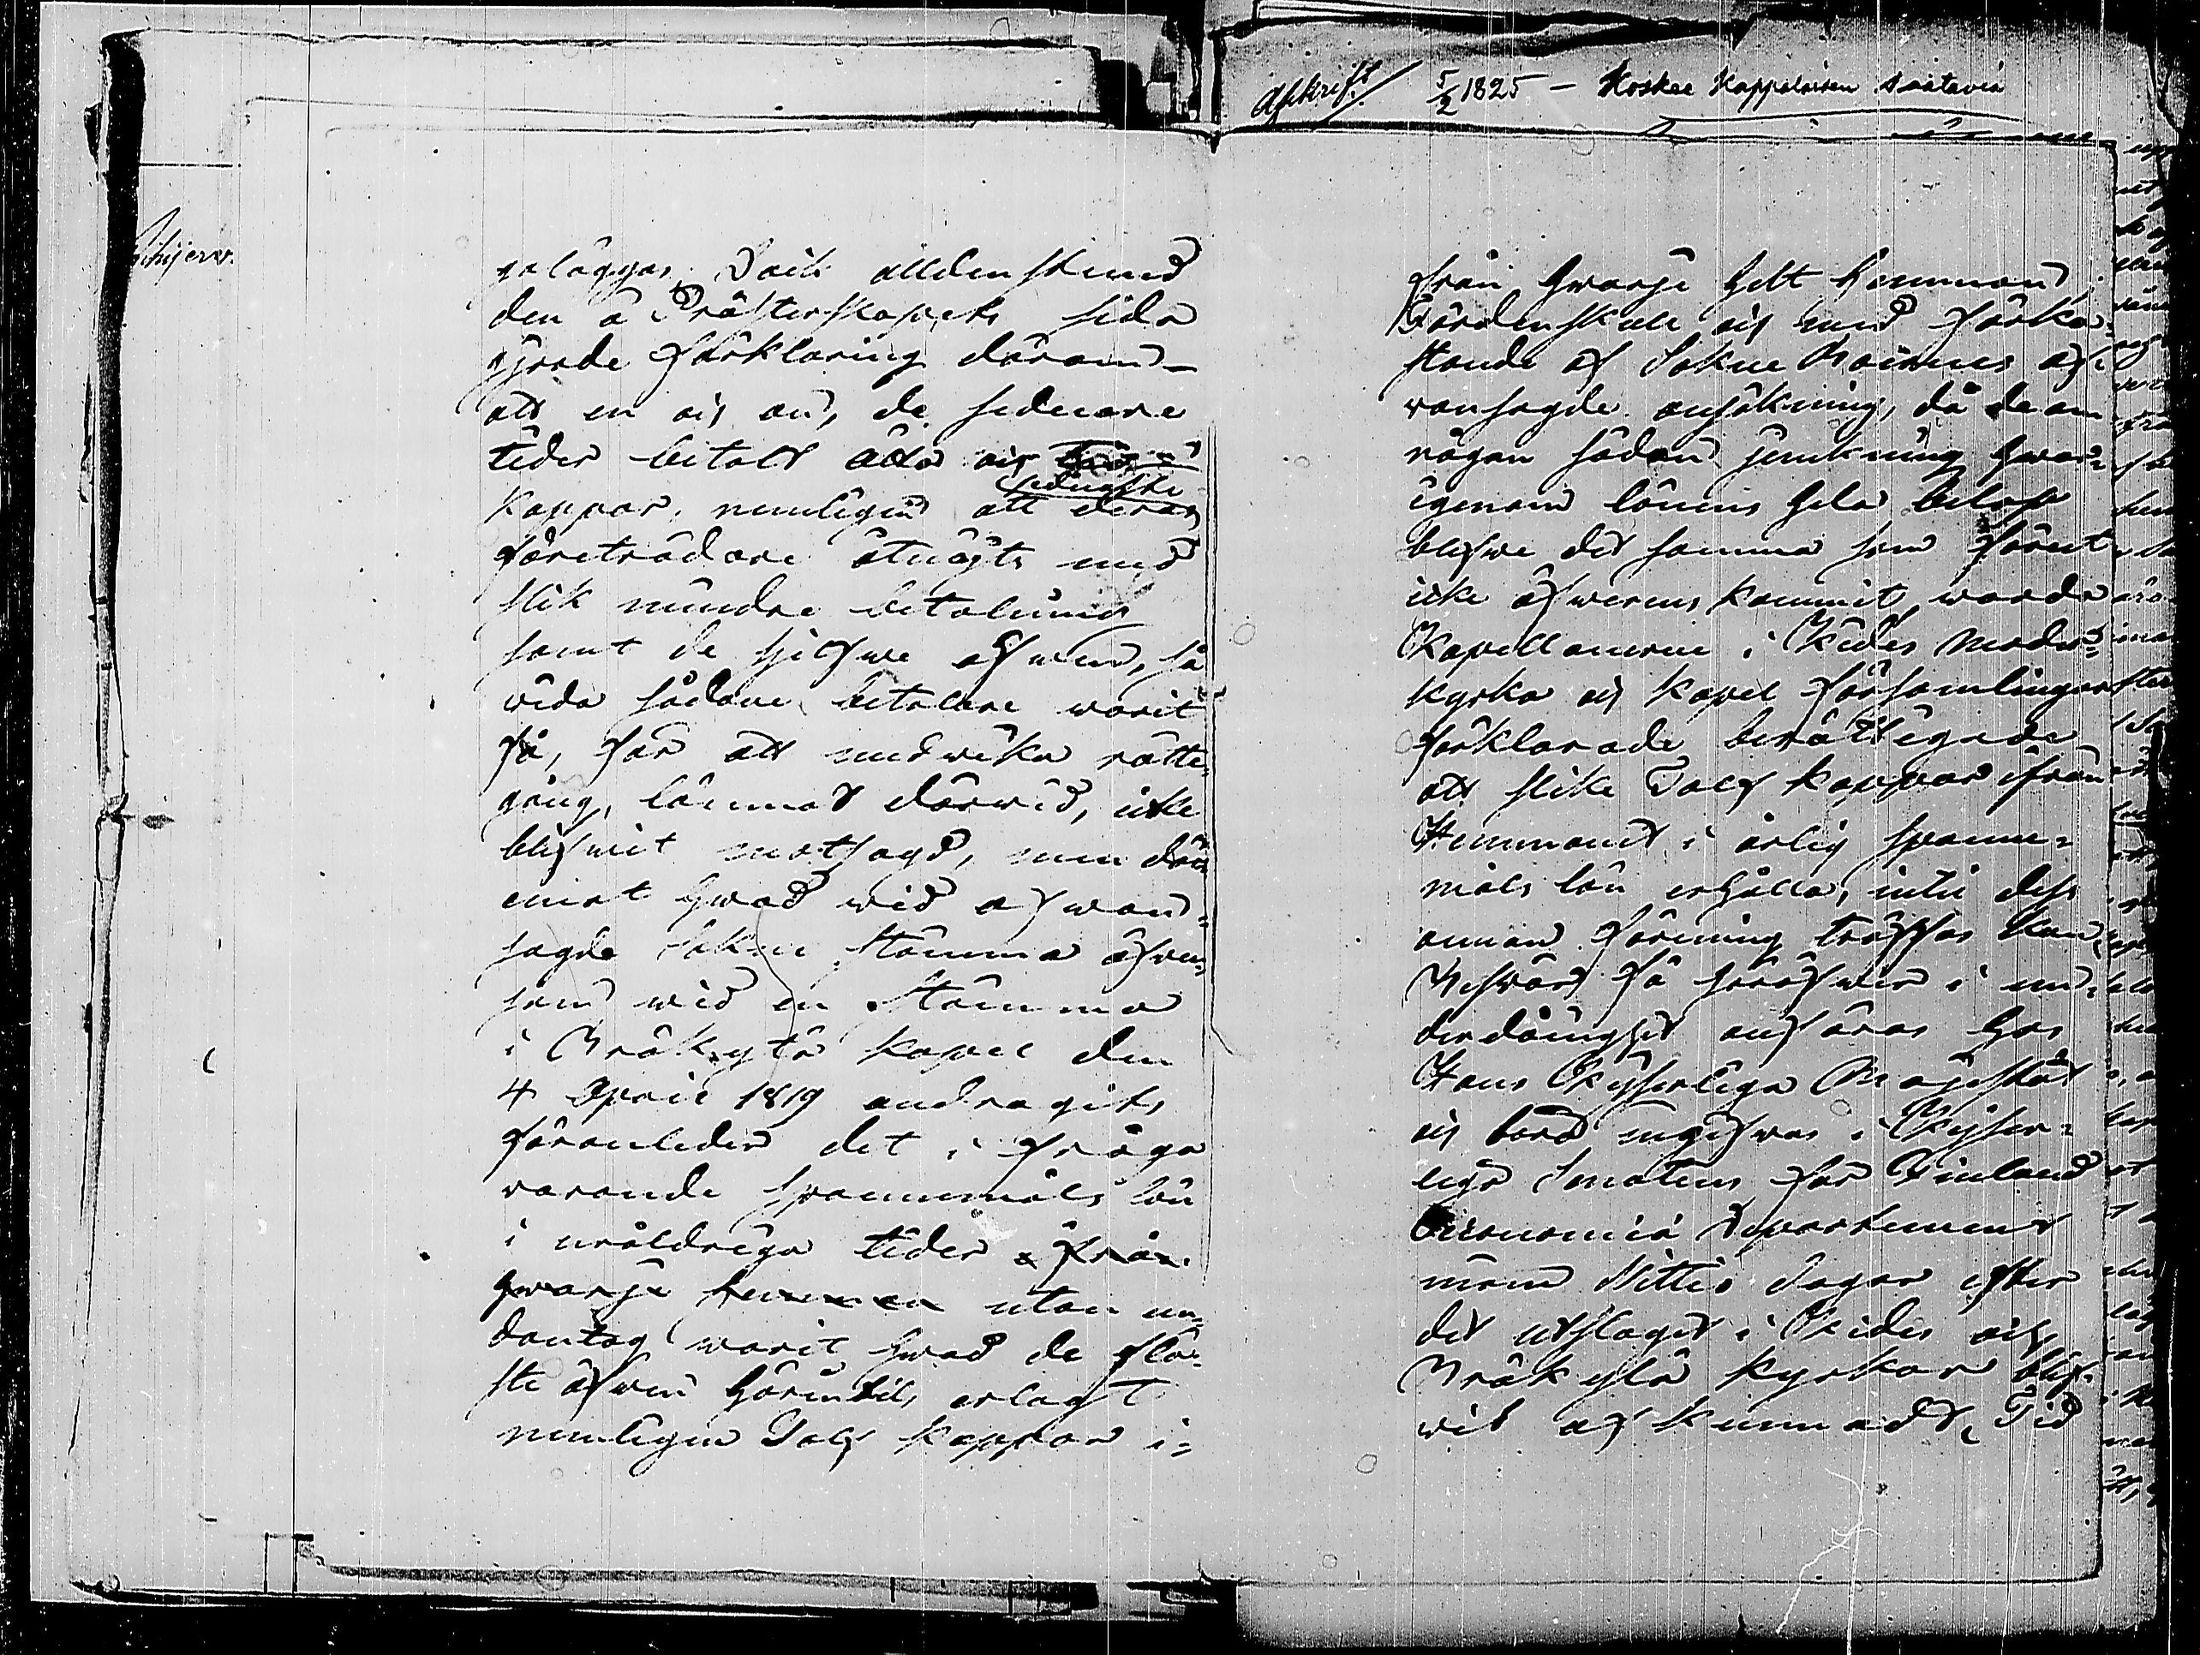 Afskrift 5/2 1825 – Koskee Kappalaisen saatavia
geläggas. Dock alldenstund
den å Prästerskapets sida
gjorde förklaring därom
att en och ann, de sednare
tider betalt åtta och
sednaste
kappar, nemligen att deras
företrädare åtnögts med
slik mindre betalning
samt de sjelfwe äfwen, så
wida sådane betalare warit
få, för att undwika rätte-
gång, lämnat därwid, icke
blifwit motsagd, men där
emot hwad wid afwan-
sagde Sokne Stämma äfwen
som wid en Stämma
i Bräkylä kapel den
4 April 1819 andragits
föranleder det i fråga
warande spannmåls lön
i uråldriga tider ifrån
hwarje hemman utan un-
dantag warit hwad de flä-
ste äfwen härintils erlagt
nemligen Tolf kappar i-
från hwarje helt Hemman;
Fördenskull och med förka-
stande af Sokne Boernes of-
wansagde ansökning, då de om
någon sådan jemkning hwar-
igenom lönens hela belop
blefwe det samma som förut
icke öfwerens kommit, warda
Kapellanerne i Kides Moder-
kyrka och kapel församlingar
förklarade berättigade
att slike Tolf kappar ifrån
Hemmanet i årlig spanne-
måls lön erhålla, intil dess
annan förening träffas kan,
Beswär få häröfwer i un-
derdånighet anföras hos
Hans Kejserliga Majestät
och böra ingifwas i Kejser-
liga Senatens för Finland
Oeconomiæ Departement
innom Nittio dagar efter
det utslaget i Kides och
Bräkylä kyrkor blif-
wit afkunnadt, Tid